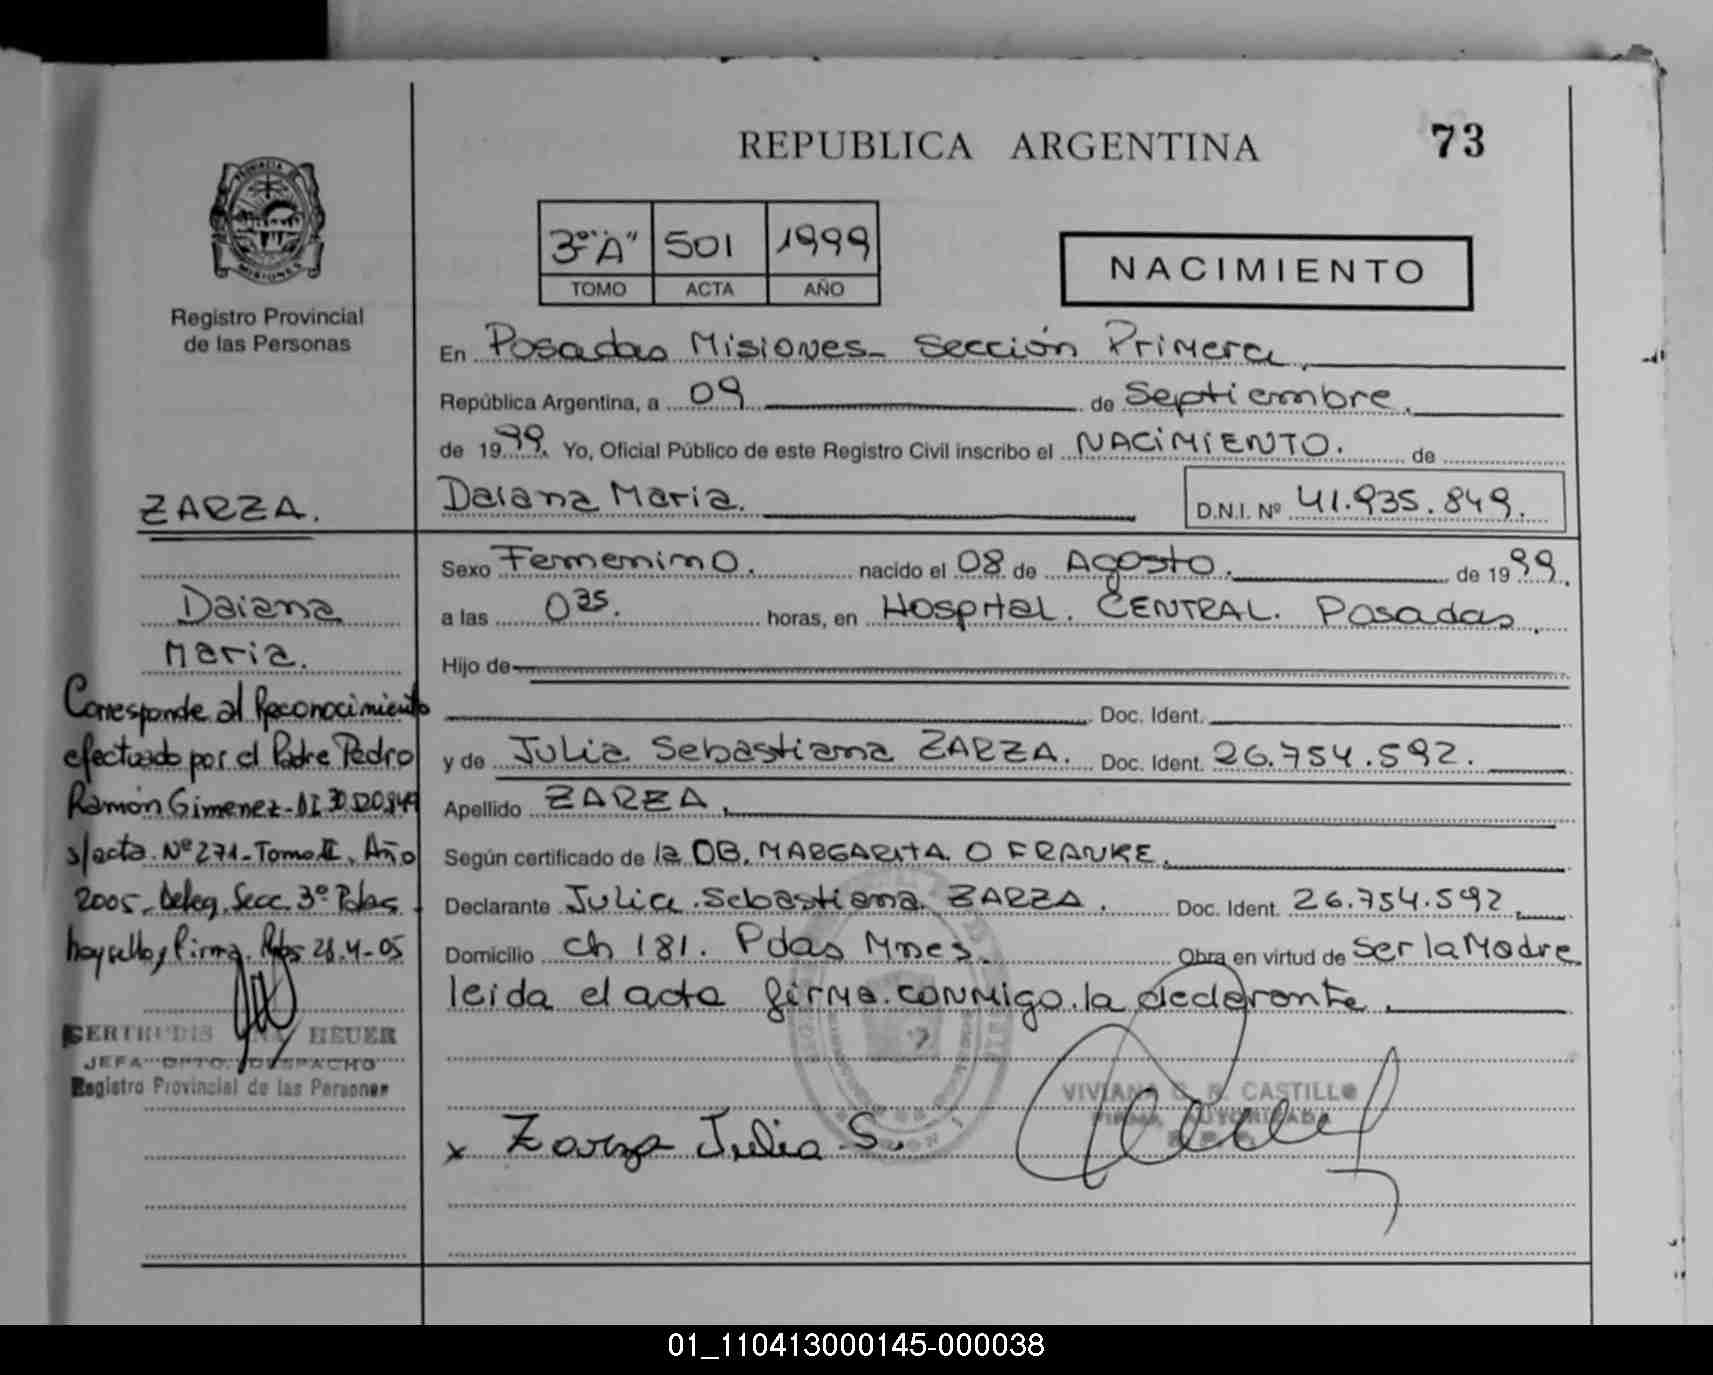 REPUBLICA ARGENTINA
73
PROVINCIA DE
MISIONES
Registro Provincial
de las Personas
3º "A" 501 1999
TOMO ACTA AÑO
NACIMIENTO
En Posadas Misiones- Sección Primera
República Argentina, a 09 de Septiembre.
de 1999. Yo, Oficial Público de este Registro Civil inscribo el NACIMIENTO. de
Daiana Maria. D.N.I. Nº 41.935.849.
Sexo Femenino. nacido el 08 de Agosto. de 1999.
a las 0 35. horas, en Hospital. CENTRAL. Posadas.
Hijo de
Doc. Ident.
y de Julia Sebastiana ZARZA. Doc. Ident. 26.754.592.
Apellido ZARZA.
Según certificado de la OB. MARGARITA O FRANKE.
Declarante Julia Sebastiana ZARZA. Doc. Ident. 26.754.592
Domicilio ch 181. Pdas Mnes. Obra en virtud de Ser la Madre
leida el acta firma conmigo la declarante.
VIVIANA C. R. CASTILLO
FIRMA AUTORIZADA
x Zarza Julia S.
ZARZA.
Daiana
Maria.
Corresponde al Reconocimiento
efectuado por el Padre Pedro
Ramón Gimenez-DI
s/acta Nº 271-Tomo II. Año
2005. Deleg. Secc. 3º Pdas
hoy sello y firma. Pdas 28-4-05
GERTRUDIS HEUER
JEFA DPTO. DESPACHO
Registro Provincial de las Personas
01_110413000145-000038